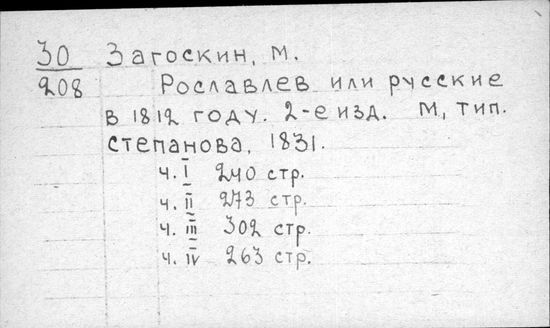 30 Загоскин, М.
208 Рославлев или русские
в 1812 году. 2-е изд. М, тип.
степанова, 1831.
ч. I 240 стр.
ч. II 273 стр.
ч. III 302 стр.
ч. IV 263 стр.